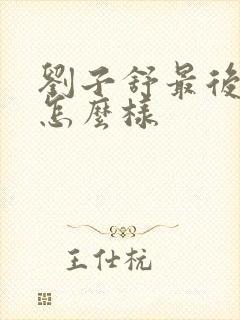 劉子舒最後
怎麼樣
王仕杭